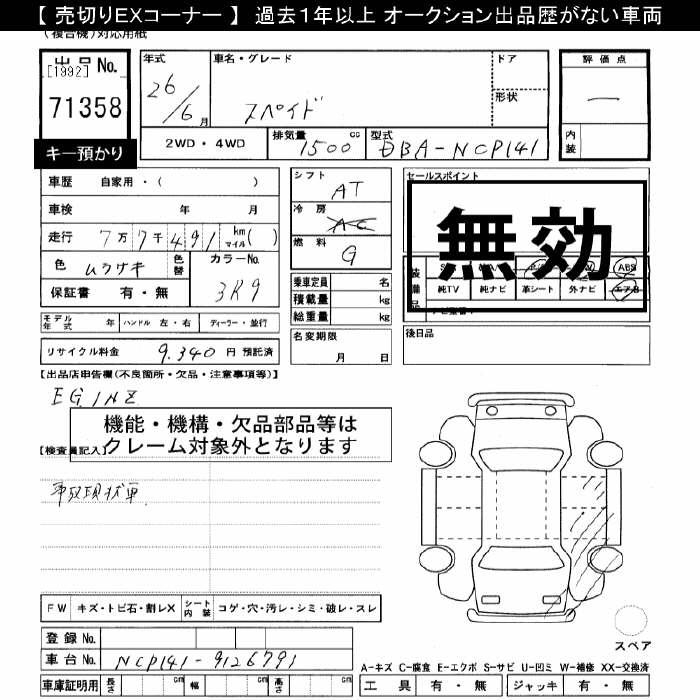 【 売切りEXコーナー 】 過去1年以上 オークション出品歴がない車両
(複合機)対応用紙
出品 No.
[1992]
71358
キー預かり
年式
26/6月
車名・グレード
スペイド
ドア
形状
評価点
―
内装
2WD・4WD
排気量 1500 cc
型式 DBA-NCP141
車歴 自家用・( )
車検 年 月
走行 7万7千491 km マイル ( )
色 ムラサキ 色替
カラーNo. 3R9
保証書 有・無
モデル年式 年 ハンドル 左・右 ディーラー・並行
リサイクル料金 9,340 円 預託済
シフト AT
冷房 AC
燃料 G
乗車定員 名
積載量 kg
総重量 kg
名変期限 月 日
セールスポイント
無効
ABS
純TV 純ナビ 革シート 外ナビ エアB
後日品
【出品店申告欄(不良箇所・欠品・注意事項等)】
EG 1NZ
機能・機構・欠品部品等は
クレーム対象外となります
【検査員記入】
事故現状車
FW キズ・トビ石・割レX シート内装 コゲ・穴・汚レ・シミ・破レ・スレ
登録 No.
車台 No. NCP141-9126791
車庫証明用 長さ cm 幅 cm 高さ cm
スペア
A-キズ C-腐食 E-エクボ S-サビ U-凹ミ W-補修 XX-交換済
工具 有・無 ジャッキ 有・無